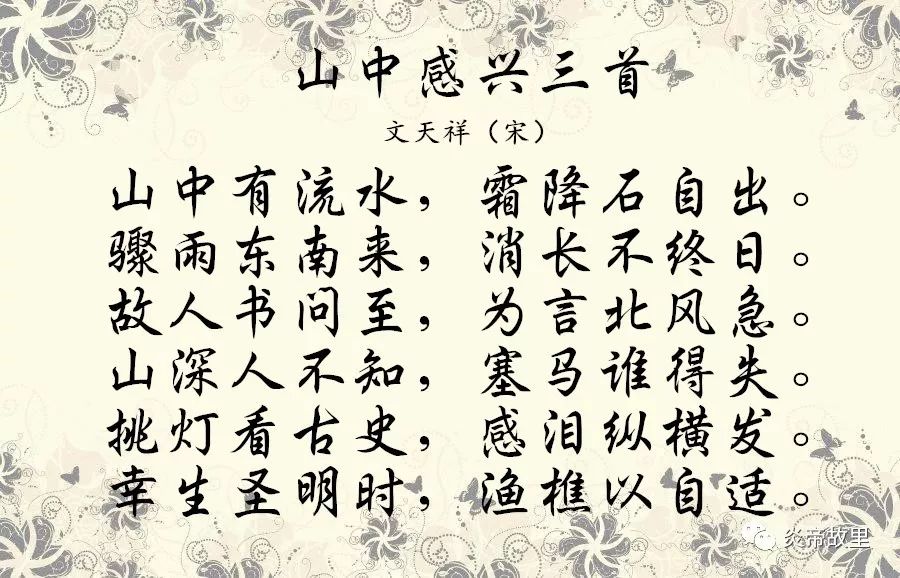 山中感兴三首
文天祥（宋）
山中有流水，霜降石自出。
骤雨东南来，消长不终日。
故人书问至，为言北风急。
山深人不知，塞马谁得失。
挑灯看古史，感泪纵横发。
幸生圣明时，渔樵以自适。
炎帝故里